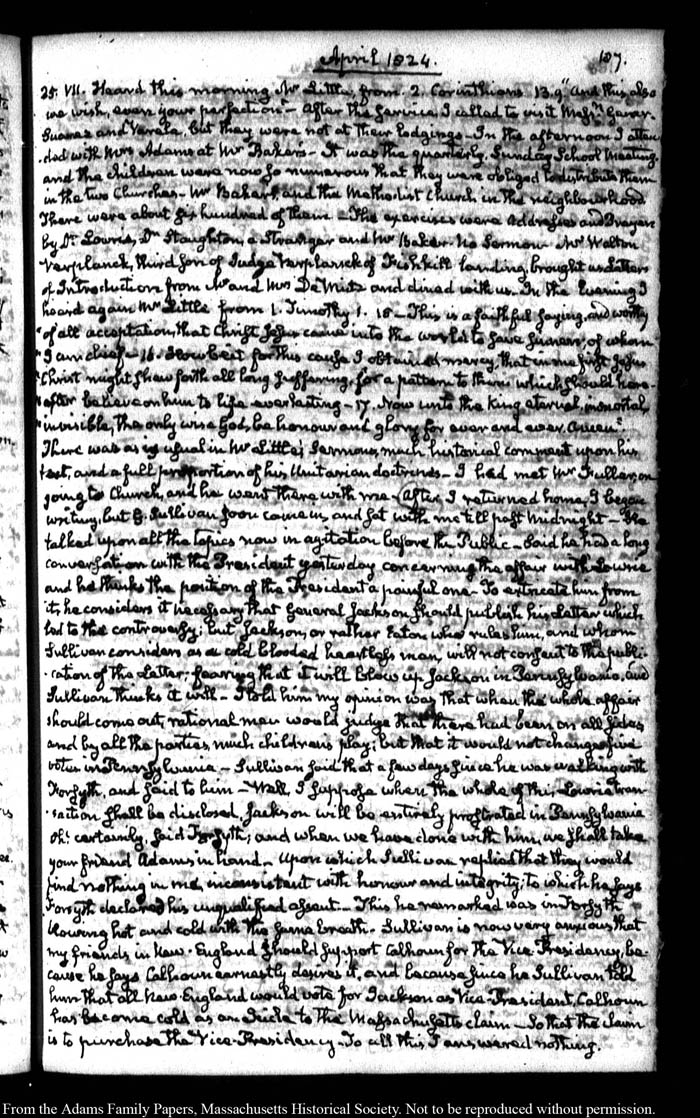 April 1824.
107.
25. VII. Heard this morning Mr Little, from 2. Corinthians 13.9 "and this also
we wish, even your perfection" - After the service I called to visit Messrs Gener.
Suarez and Varela, but they were not at their lodgings - In the afternoon I atten
ded with Mrs Adams at Mr Baker's - It was the quarterly Sunday School Meeting
and the children were now so numerous that they were obliged to distribute them
in the two Churches - Mr Baker's, and the Methodist Church in the neighbourhood
There were about six hundred of them - The exercises were Addresses and Prayers
by Dr Lowrie, Dr Staughton, a Stranger and Mr Baker. No Sermon. Mr Walton
Verplanck, third son of Judge Verplanck of Fishkill landing, brought us Letters
of Introduction from Mr and Mrs De Wint and dined with us. In the Evening I
heard again Mr Little from 1. Timothy 1. 15 - This is a faithful saying, and worthy
"of all acceptation, that Christ Jesus came into the world to save sinners; of whom
"I am chief - 16. Howbeit for this cause I obtained mercy, that in me first Jesus
"Christ might shew forth all long suffering, for a pattern to them which should here-
"after believe on him to life everlasting - 17. Now unto the King eternal, immortal,
"invisible, the only wise God, be honour and glory for ever and ever. Amen."
There was as is usual in Mr Little's Sermons, much historical comment upon his
text, and a full proportion of his Unitarian doctrines - I had met Mr Fuller, on
going to Church, and he went there with me - After I returned home, I began
writing, but G. Sullivan soon came in, and sat with me till past Midnight - He
talked upon all the topics now in agitation before the Public - Said he had a long
conversation with the President yesterday concerning the affair with Lowrie
and he thinks the position of the President a painful one - To extricate him from
it, he considers it necessary that General Jackson should publish his letter which
led to the controversy; but Jackson, or rather Eaton who rules him, and whom
Sullivan considers as a cold blooded heartless man, will not consent to the publi-
cation of the letter; fearing that it will blow up Jackson in Pennsylvania, and
Sullivan thinks it will - I told him my opinion was that when the whole affair
should come out, rational men would judge that there had been on all sides
and by all the parties, much children's play; but that it would not change five
votes in Pennsylvania - Sullivan said that a few days since he was walking with
Forsyth, and said to him - Well, I suppose when the whole of this Lowrie tran-
saction shall be disclosed, Jackson will be entirely prostrated in Pennsylvania
Oh! certainly, said Forsyth; and when we have done with him, we shall take
your friend Adams in hand. Upon which Sullivan replied that they would
find nothing in me, inconsistent with honour and integrity; to which he says
Forsyth declared his unqualified assent - This he remarked was in Forsyth
blowing hot and cold with the same breath. Sullivan is now very anxious that
my friends in New-England should support Calhoun for the Vice Presidency, be-
cause he says Calhoun earnestly desires it, and because since he Sullivan told
him that all New England would vote for Jackson as Vice-President, Calhoun
has become cold as an Icicle to the Massachusetts claim - So that the claim
is to purchase the Vice-Presidency. To all this I answered nothing.
From the Adams Family Papers, Massachusetts Historical Society. Not to be reproduced without permission.